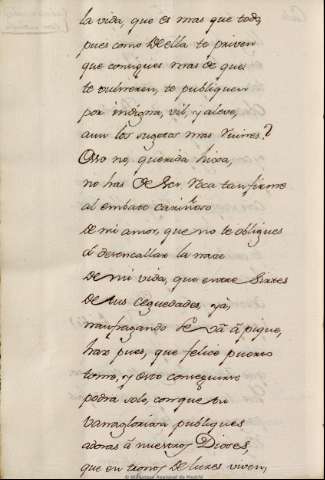 la vida, que es mas que todo,
pues como de ella te priven
que consigues mas de que
te vulneren, te publiquen
por indigna, vil, y aleve,
aun los sugetos mas ruines?
Esso no, querida hixa,
no has de ser roca tan firme
al embate cariñoso
de mi amor, que no te obligues
á desencallar la nave
de mi vida, que entre sirtes
de tus ceguedades, yà,
naufragando se và à pique,
haz pues, que felice puerto
tome, y esto conseguirse
podrà solo, con que tu
vanagloriosa publiques
adoras à nuestros Dioses,
que en tronos de luzes viven,
Biblioteca Nacional de Madrid